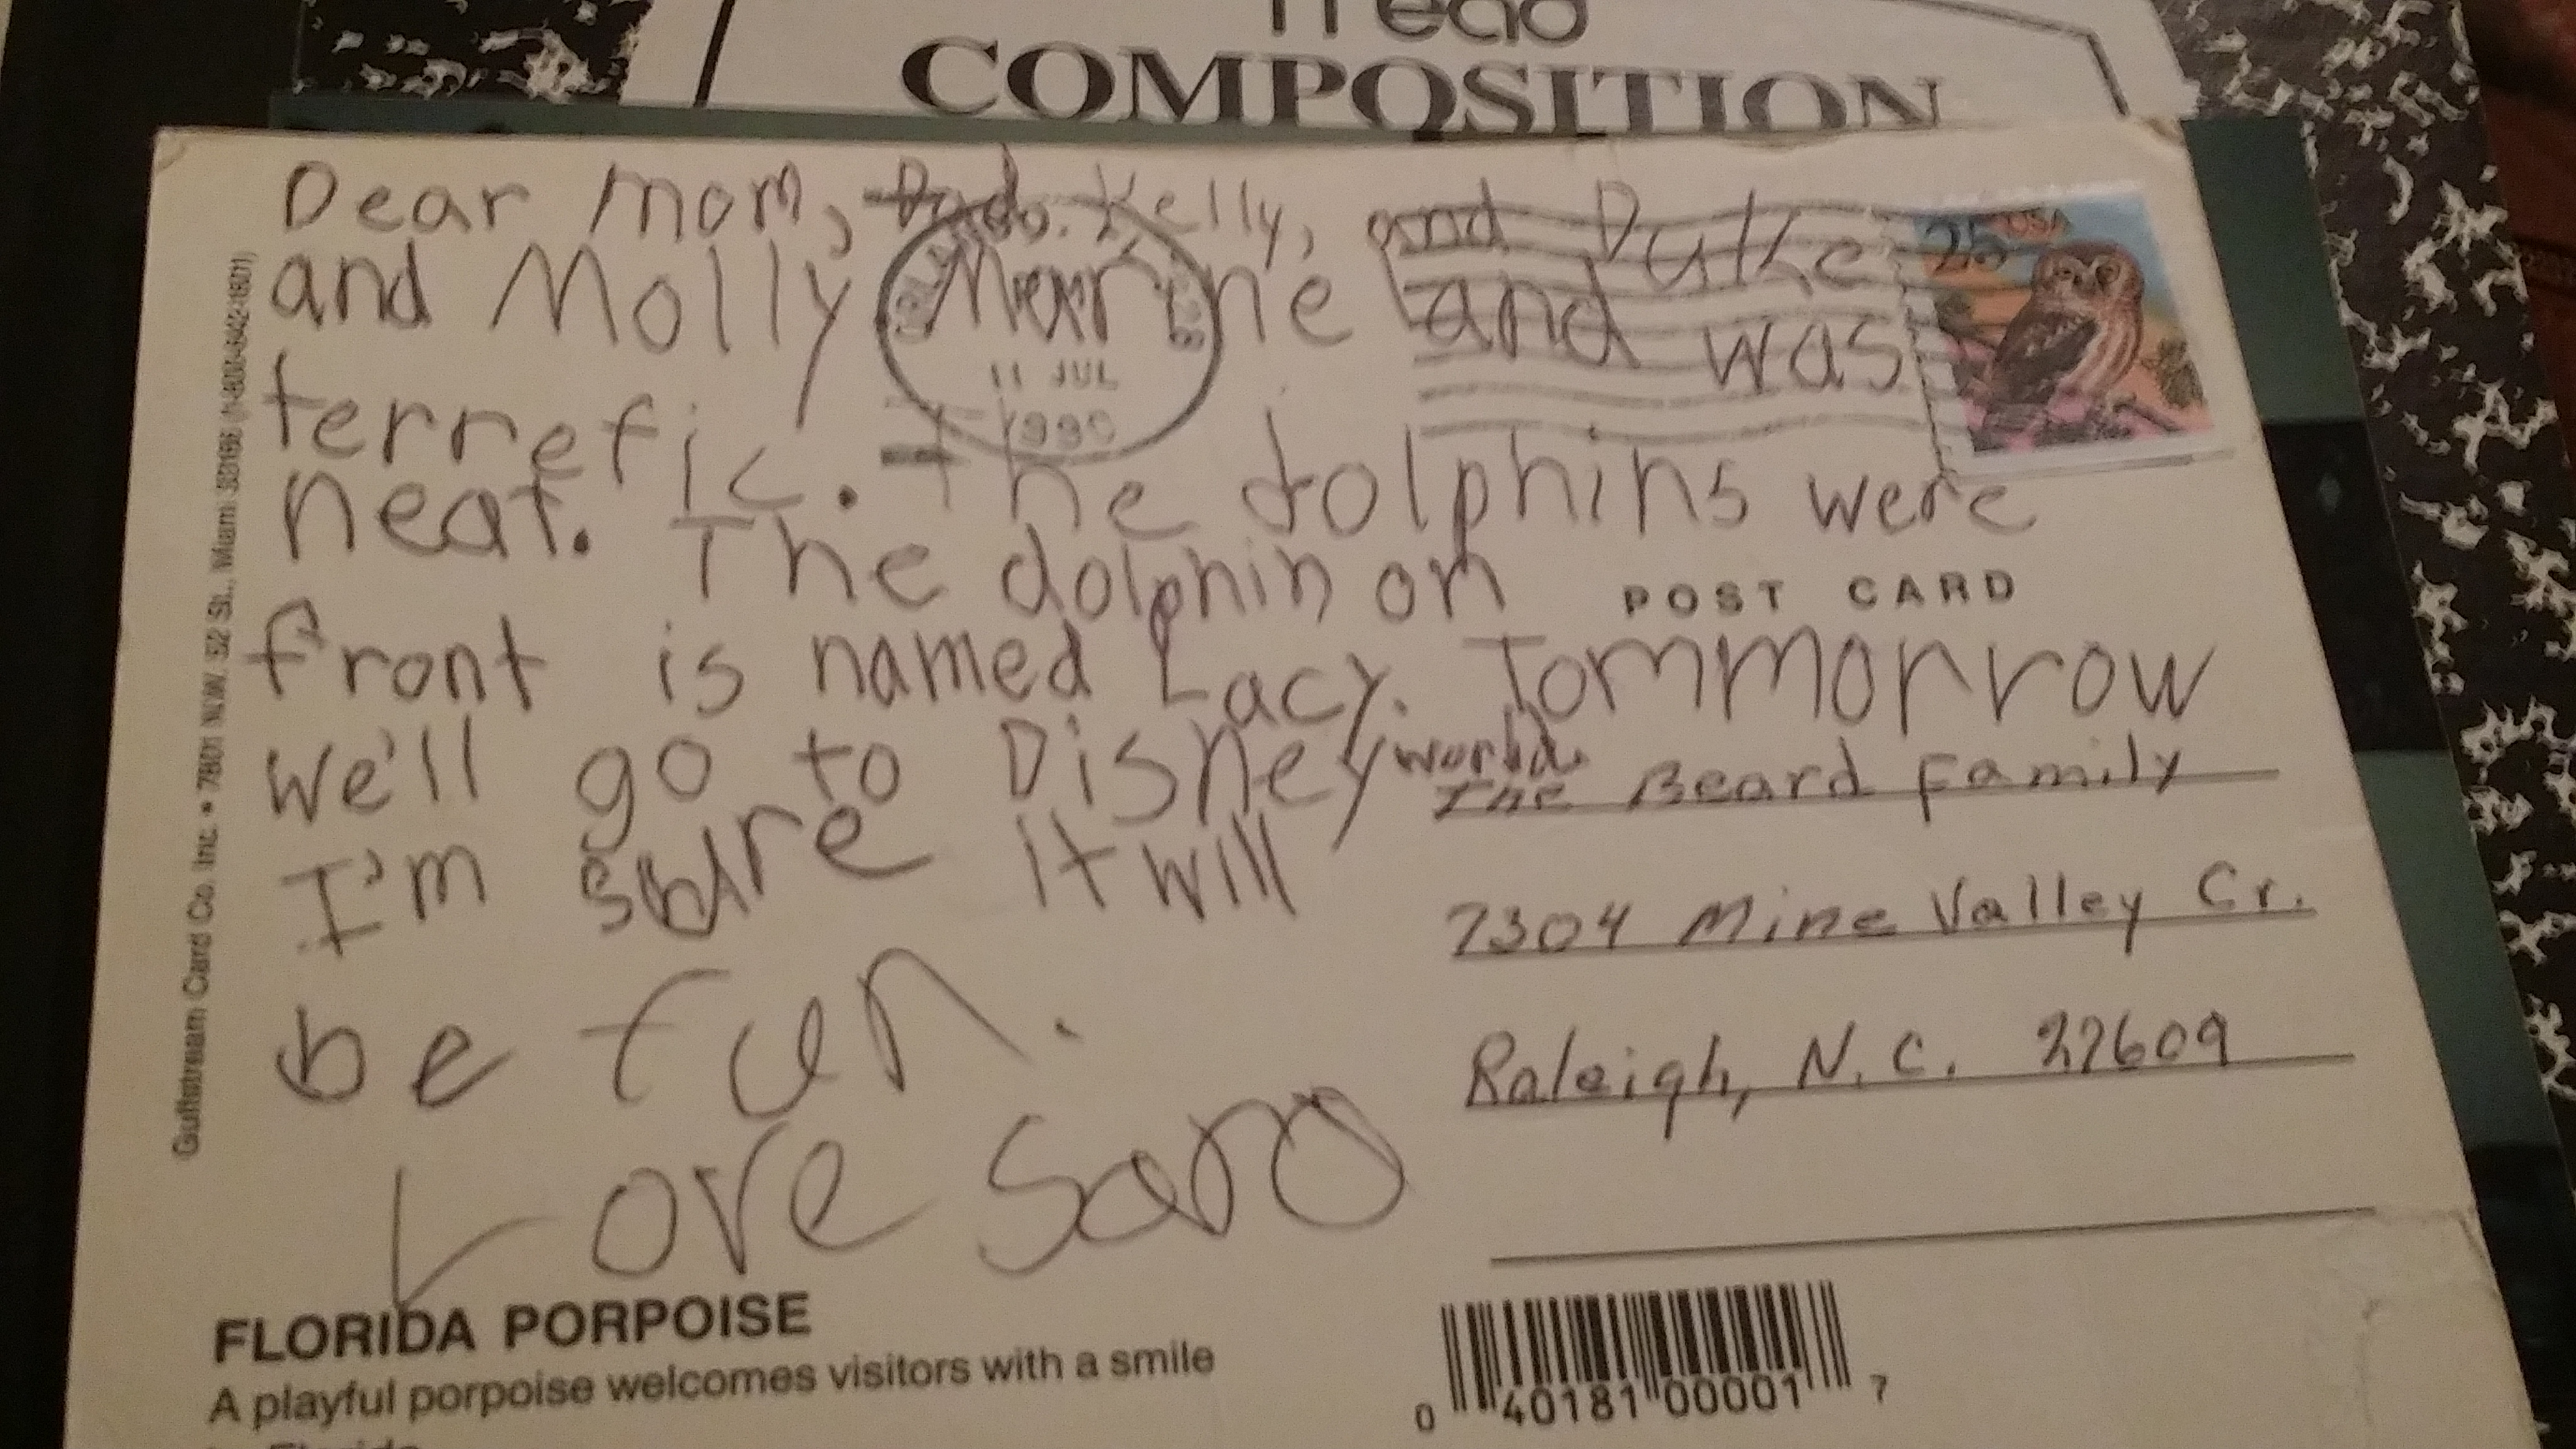 COMPOSITION
Dear mom, Dad, Kelly, and Duke
and Molly Marine land was
terrefic. The dolphins were
neat. The dolphin on
front is named Lacy. Tommorrow
we'll go to Disney world.
I'm sure it will
be fun.
Love Sara
25 USA
11 JUL
1990
POST CARD
The Beard Family
7304 Mine Valley Cr.
Raleigh, N.C. 27609
Gulfstream Card Co. Inc. • 7801 N.W. 52 St., Miami 33166 (1-800-842-1801)
FLORIDA PORPOISE
A playful porpoise welcomes visitors with a smile
0 40181 00001 7